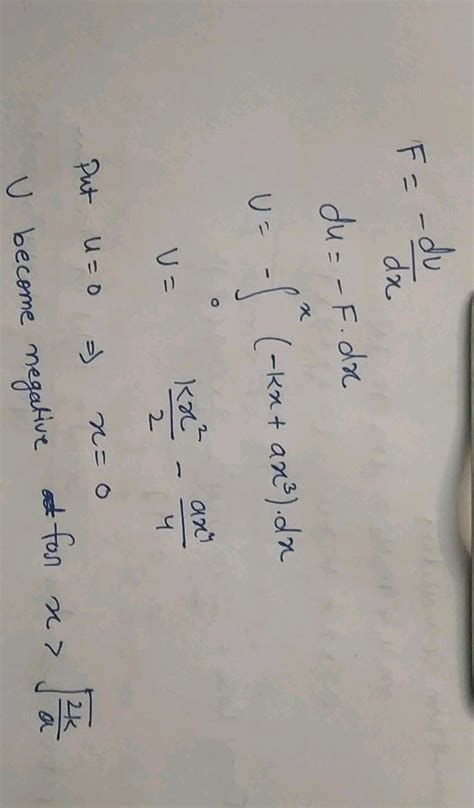 F = -du/dx
du = -F.dx
U = -∫₀ˣ (-kx + ax³).dx
U = kx²/2 - ax⁴/4
Put u=0 ⇒ x=0
U become negative for x > √(2k/a)